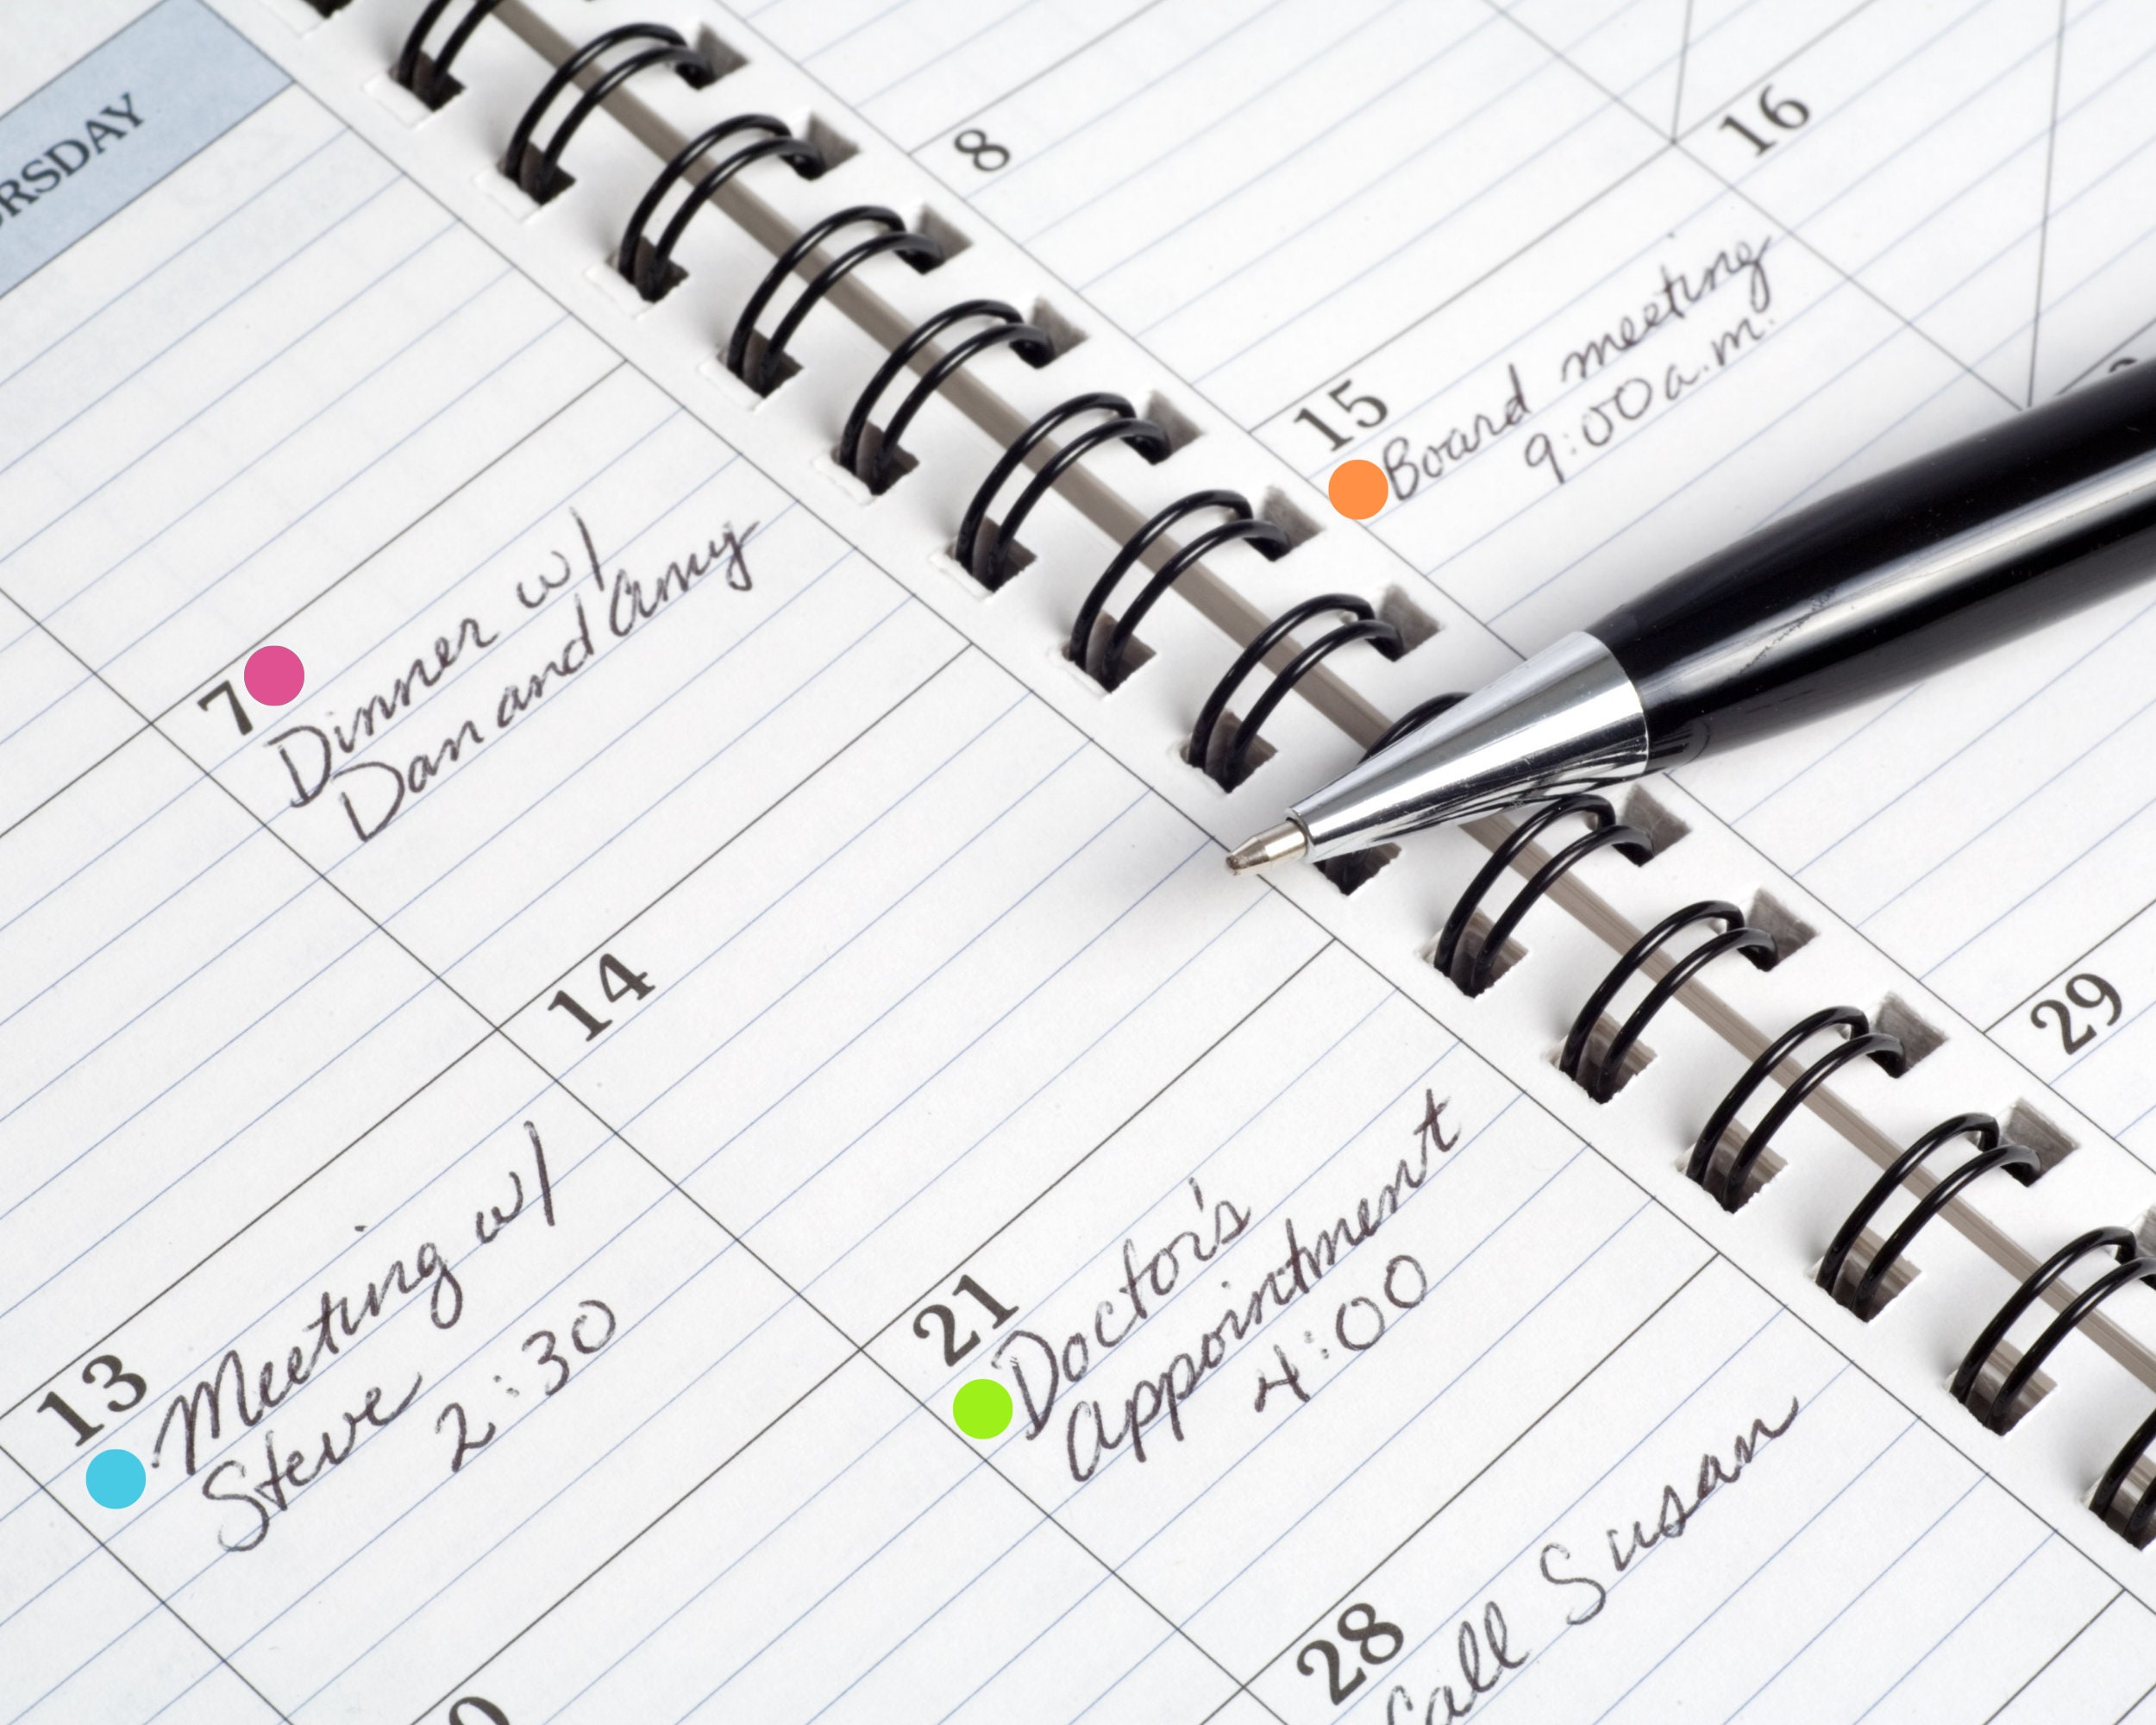 RSDAY
7
Dinner w/
Dan and Amy
14
13
Meeting w/
Steve 2:30
21
Doctor's
Appointment
4:00
28
Call Susan
8
15
Board meeting
9:00 a.m.
16
29